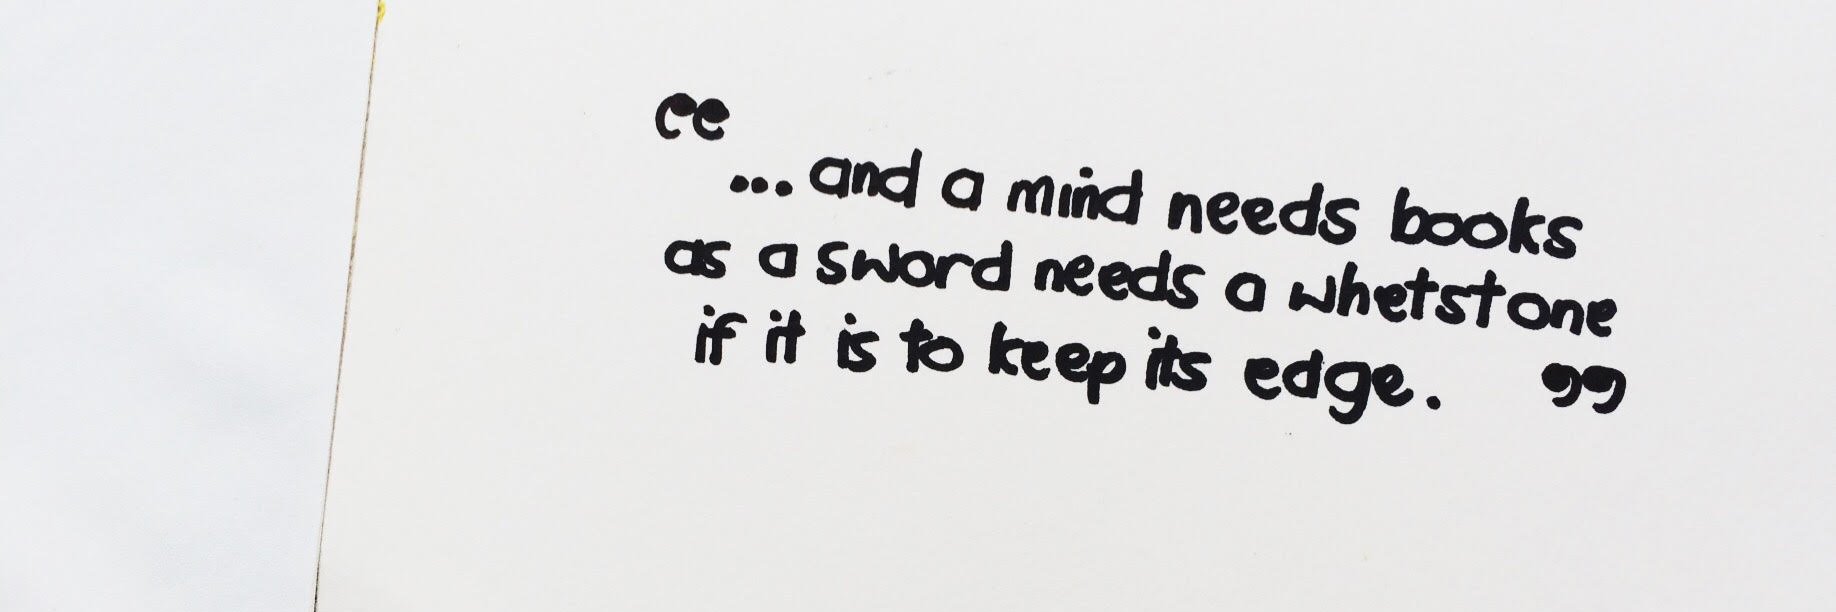 “
... and a mind needs books
as a sword needs a whetstone
if it is to keep its edge. ”